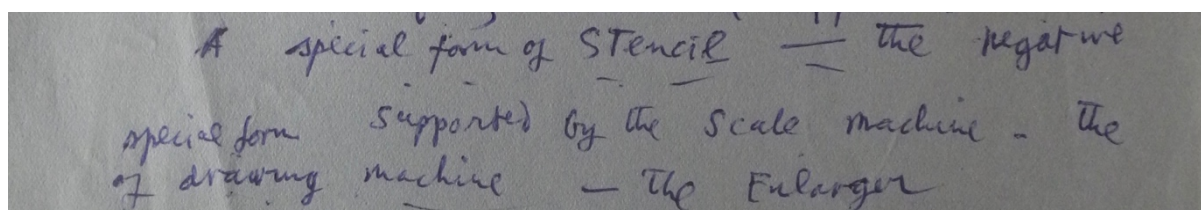 A special form of STencil — the negative
special form supported by the Scale machine - the
of drawing machine — The Enlarger